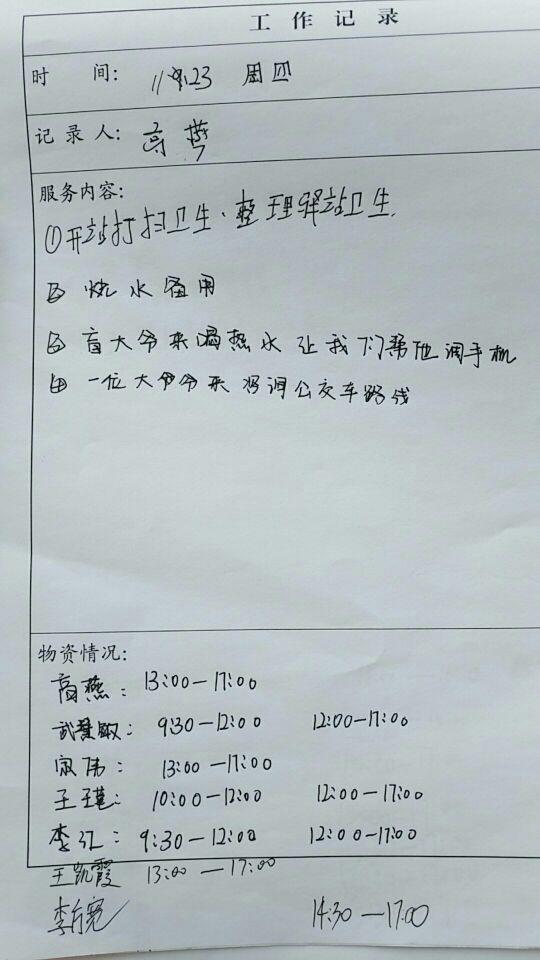 工作记录
时 间: 11月23 周四
记录人: 高燕
服务内容:
①开站打扫卫生、整理驿站卫生.
② 烧水备用
③ 盲大爷来喝热水让我们帮他调手机
④ 一位大爷爷来 询问公交车路线
物资情况:
高燕: 13:00—17:00
武慧敏: 9:30—12:00 12:00—17:00
伟: 13:00—17:00
王瑾: 10:00—12:00 12:00—17:00
李红: 9:30—12:00 12:00—17:00
王凯霞 13:00—17:00
李 14:30—17:00